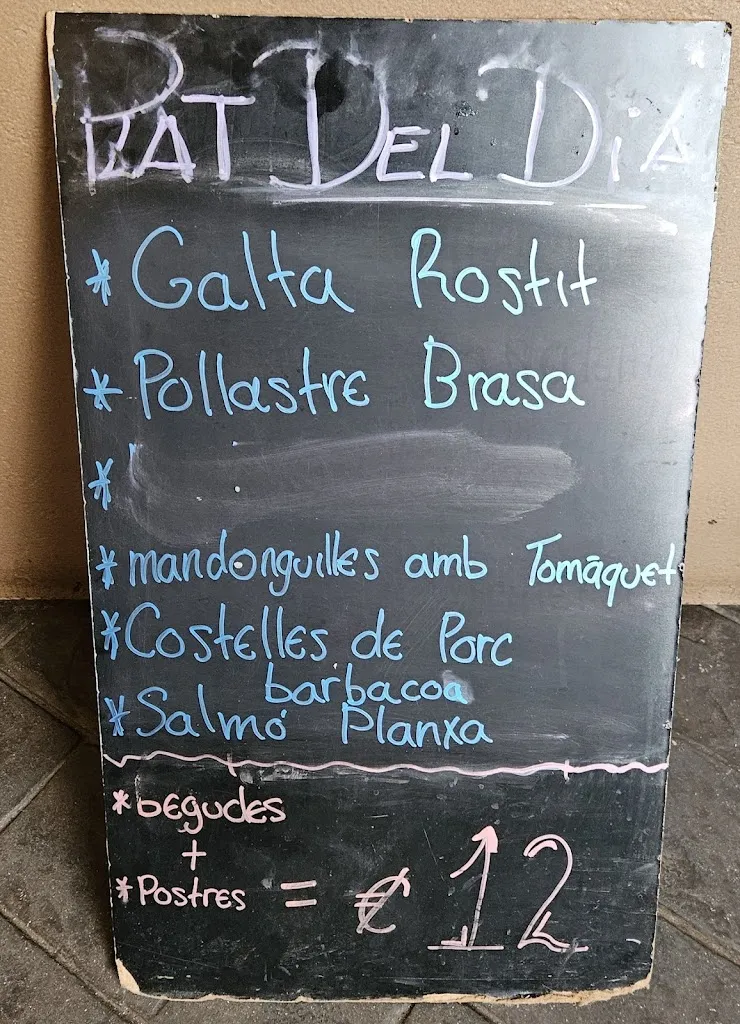 PLAT DEL DIA
* Galta Rostit
* Pollastre Brasa
*
* mandonguilles amb Tomàquet
* Costelles de Porc
barbacoa
* Salmó Planxa
* begudes
+
* Postres = € 12